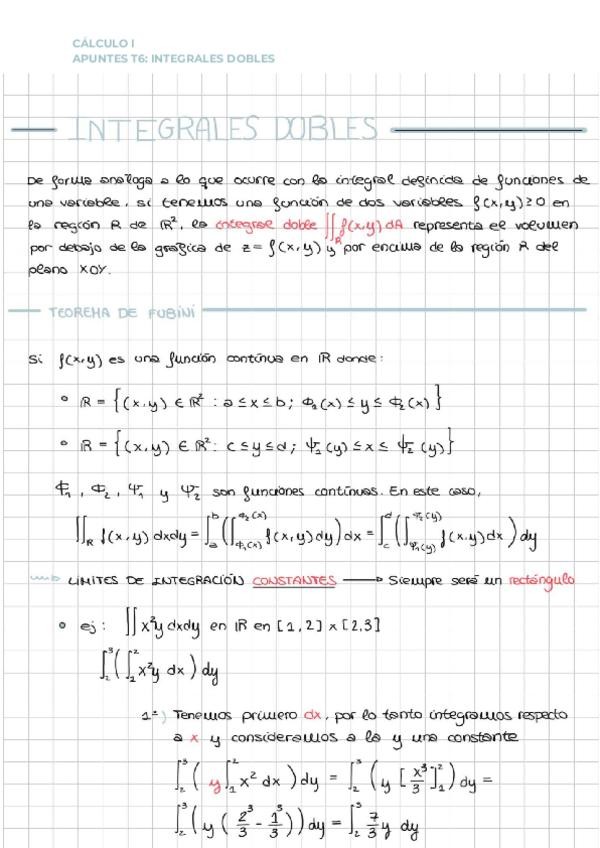 CÁLCULO I
APUNTES T6: INTEGRALES DOBLES
INTEGRALES DOBLES
De forma análoga a lo que ocurre con la integral definida de funciones de
una variable, si tenemos una función de dos variables f(x,y) ≥ 0 en
la región R de ℝ², la integral doble ∬_R f(x,y) dA representa el volumen
por debajo de la gráfica de z = f(x,y) y por encima de la región R del
plano XOY.
TEOREMA DE FUBINI
Si f(x,y) es una función continua en R donde:
• R = {(x,y) ∈ ℝ² : a ≤ x ≤ b ; Φ₁(x) ≤ y ≤ Φ₂(x)}
• R = {(x,y) ∈ ℝ² : c ≤ y ≤ d ; Ψ₁(y) ≤ x ≤ Ψ₂(y)}
Φ₁, Φ₂, Ψ₁ y Ψ₂ son funciones continuas. En este caso,
∬_R f(x,y) dxdy = ∫_a^b (∫_{Φ₁(x)}^{Φ₂(x)} f(x,y) dy) dx = ∫_c^d (∫_{Ψ₁(y)}^{Ψ₂(y)} f(x,y) dx) dy
LÍMITES DE INTEGRACIÓN CONSTANTES → Siempre será un rectángulo
• ej: ∬ x²y dxdy en R en [1,2] x [2,3]
∫_2^3 (∫_1^2 x²y dx) dy
1º) Tenemos primero dx, por lo tanto integramos respecto
a x y consideramos a la y una constante
∫_2^3 (y ∫_1^2 x² dx) dy = ∫_2^3 (y [x³/3]_1^2) dy =
∫_2^3 (y (2³/3 - 1³/3)) dy = ∫_2^3 7/3 y dy